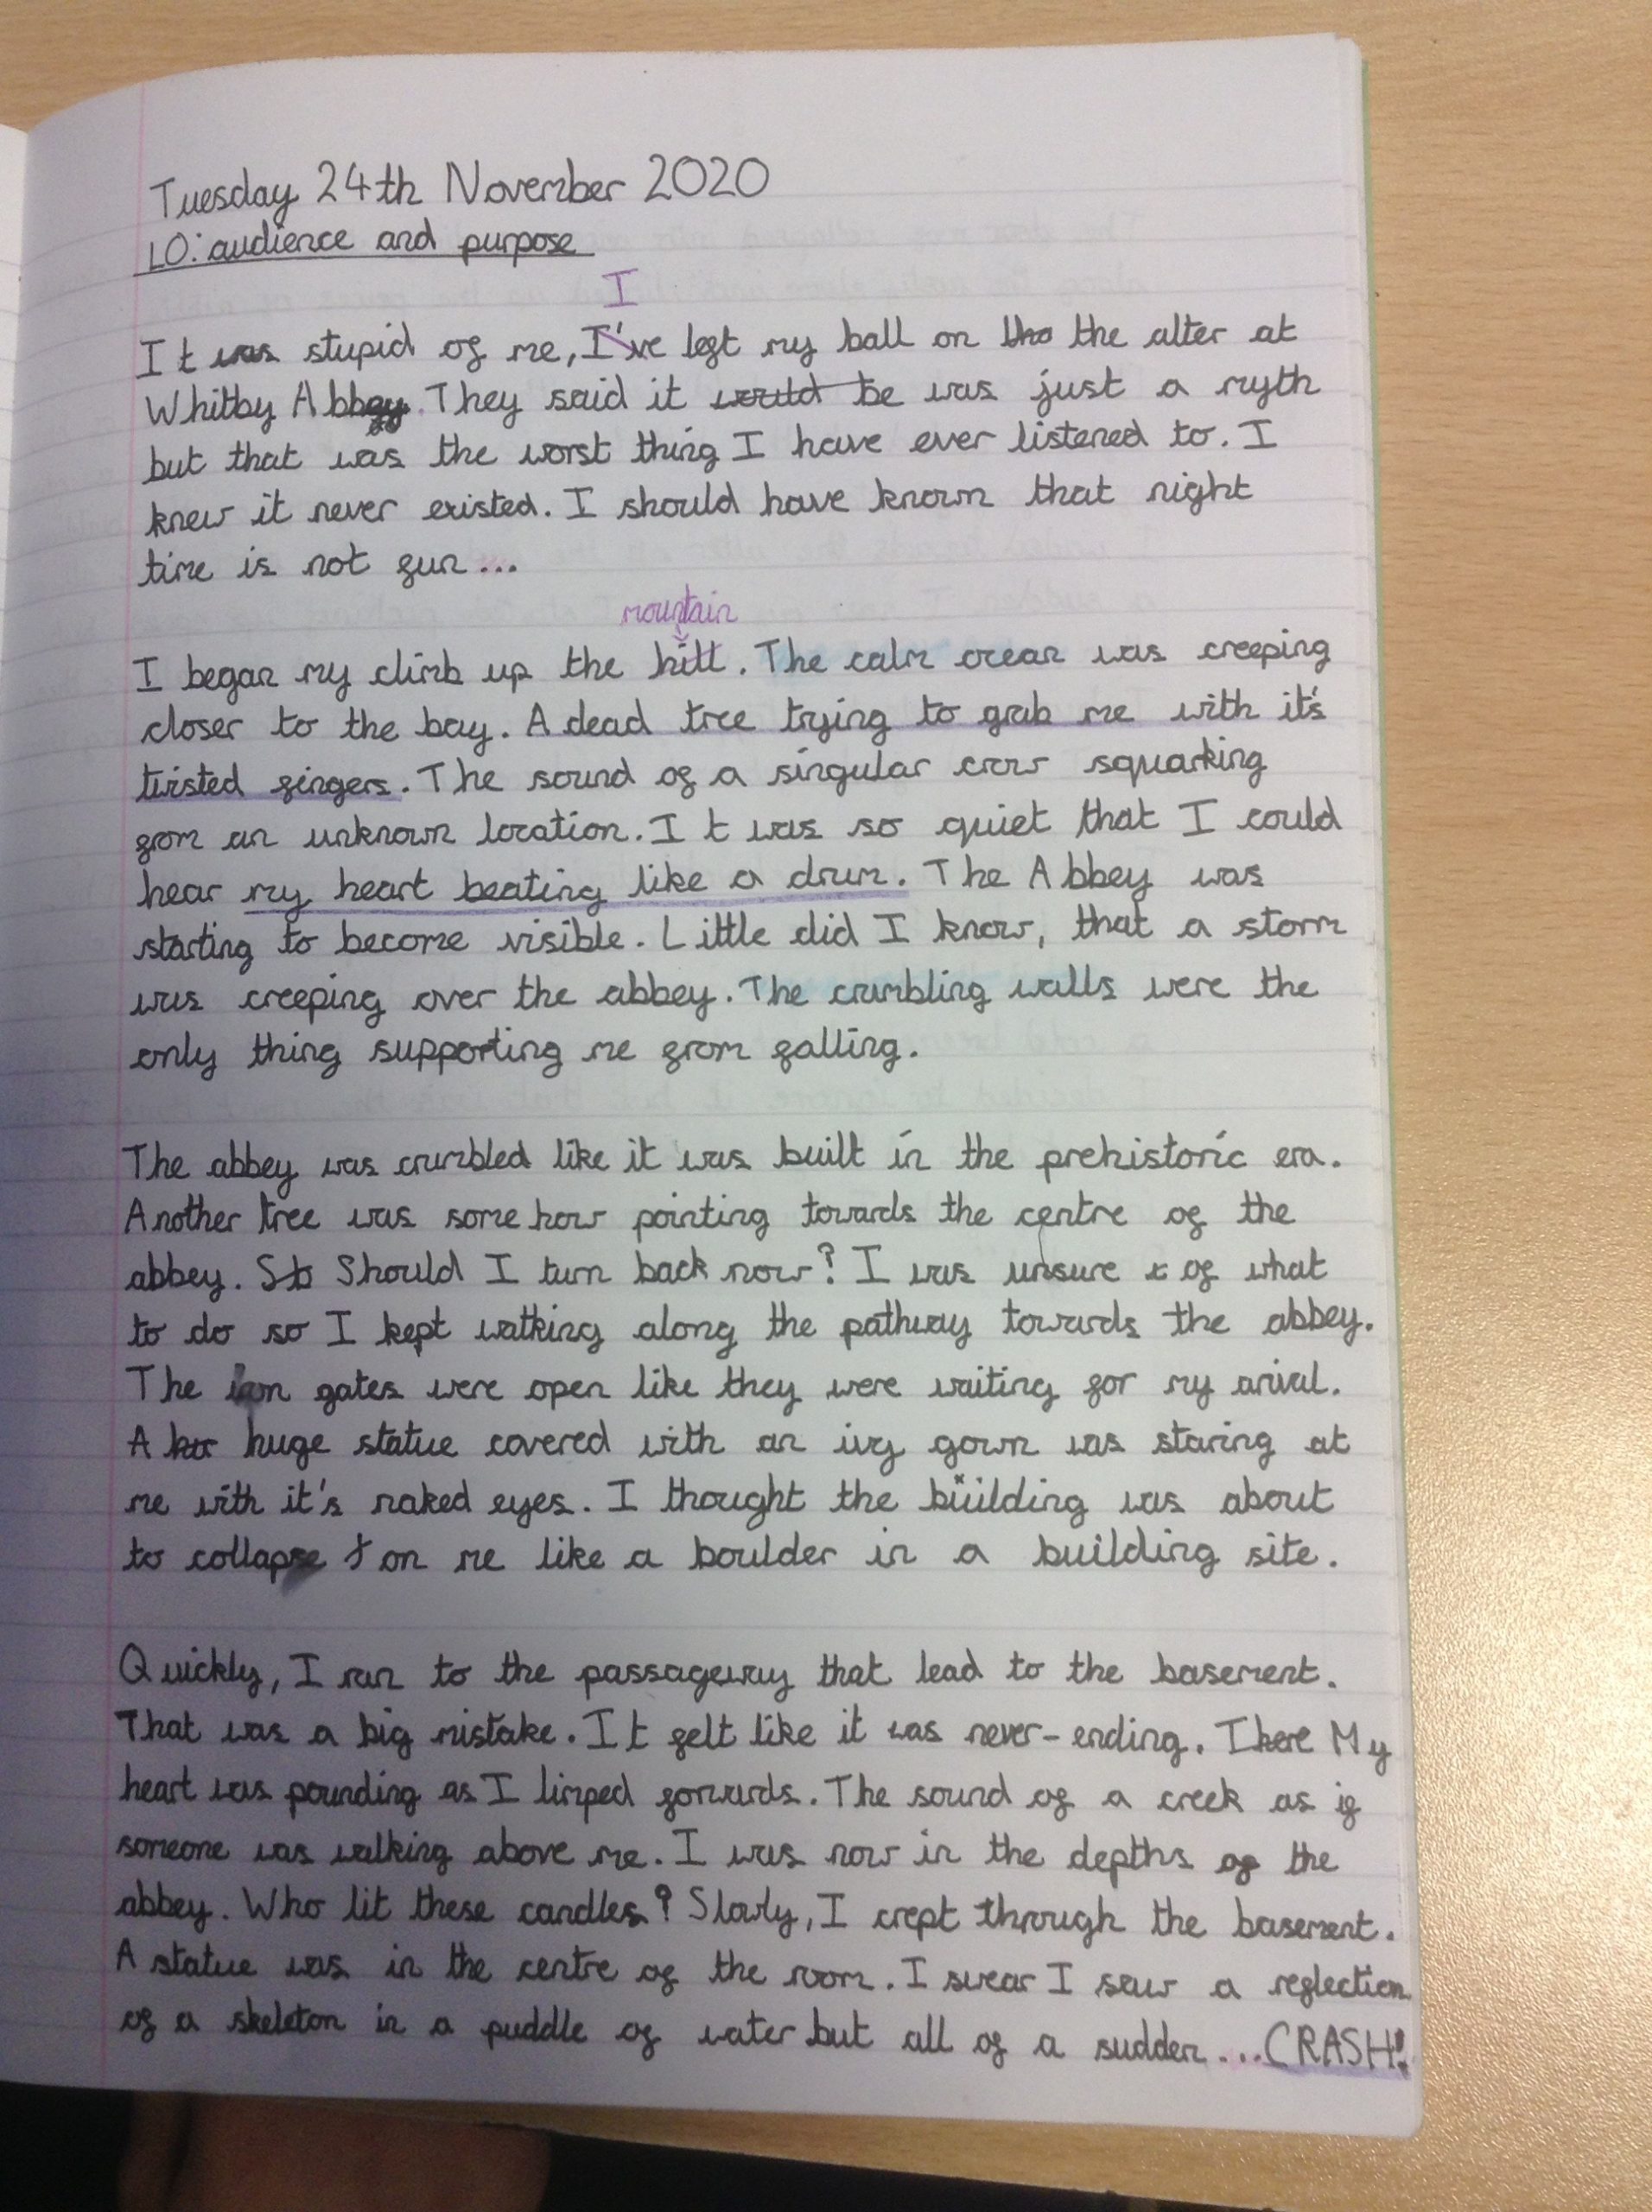 Tuesday 24th November 2020
LO: audience and purpose
I
It was stupid of me, I've left my ball on tho the alter at
Whitby Abbey. They said it would be was just a myth
but that was the worst thing I have ever listened to. I
knew it never existed. I should have known that night
time is not fun...
mountain
I began my climb up the hill. The calm ocean was creeping
closer to the bay. A dead tree trying to grab me with it's
twisted fingers. The sound of a singular crow squarking
from an unknown location. It was so quiet that I could
hear my heart beating like a drum. The Abbey was
starting to become visible. Little did I know, that a storm
was creeping over the abbey. The crumbling walls were the
only thing supporting me from falling.
The abbey was crumbled like it was built in the prehistoric era.
Another tree was some how pointing towards the centre of the
abbey. Sh Should I turn back now? I was unsure of what
to do so I kept walking along the pathway towards the abbey.
The iron gates were open like they were waiting for my arival.
A huge statue covered with an ivy gown was staring at
me with it's naked eyes. I thought the building was about
to collapse on me like a boulder in a building site.
Quickly, I ran to the passageway that lead to the basement.
That was a big mistake. It felt like it was never-ending. There My
heart was pounding as I limped forwards. The sound of a creek as if
someone was walking above me. I was now in the depths of the
abbey. Who lit these candles? Slowly, I crept through the basement.
A statue was in the centre of the room. I swear I saw a reflection
of a skeleton in a puddle of water but all of a sudden...CRASH!